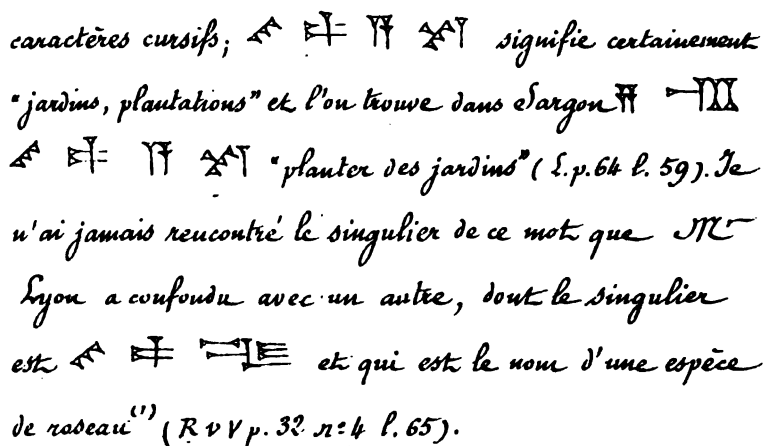 caractères cursifs; signifie certainement
"jardins, plantations" et l'on trouve dans Sargon
"planter des jardins" (L. p. 64 l. 59). Je
n'ai jamais rencontré le singulier de ce mot que Mr
Lyon a confondu avec un autre, dont le singulier
est et qui est le nom d'une espèce
de roseau(1) (R v V p. 32 nº 4 l. 65).